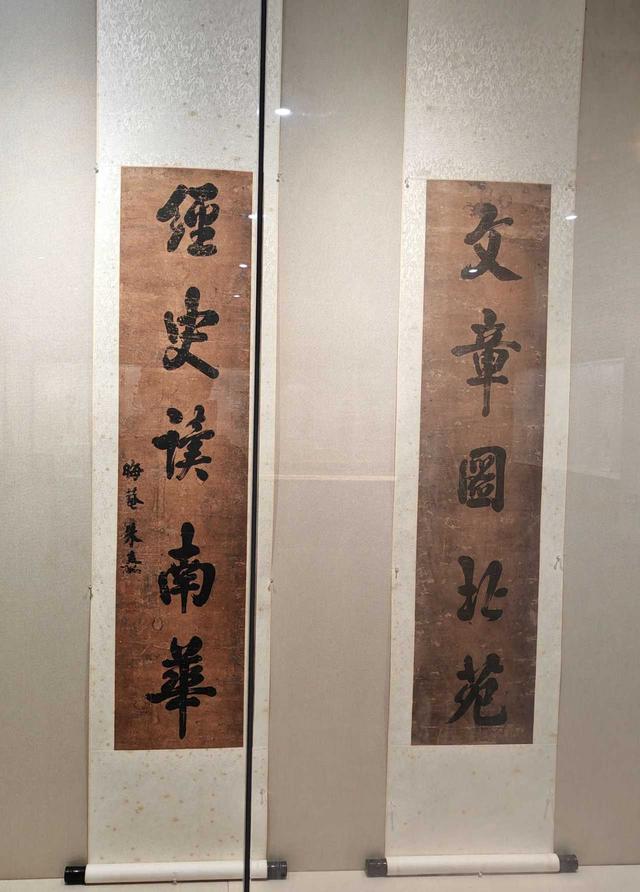 文章圖北苑
經史談南華
晦菴朱熹